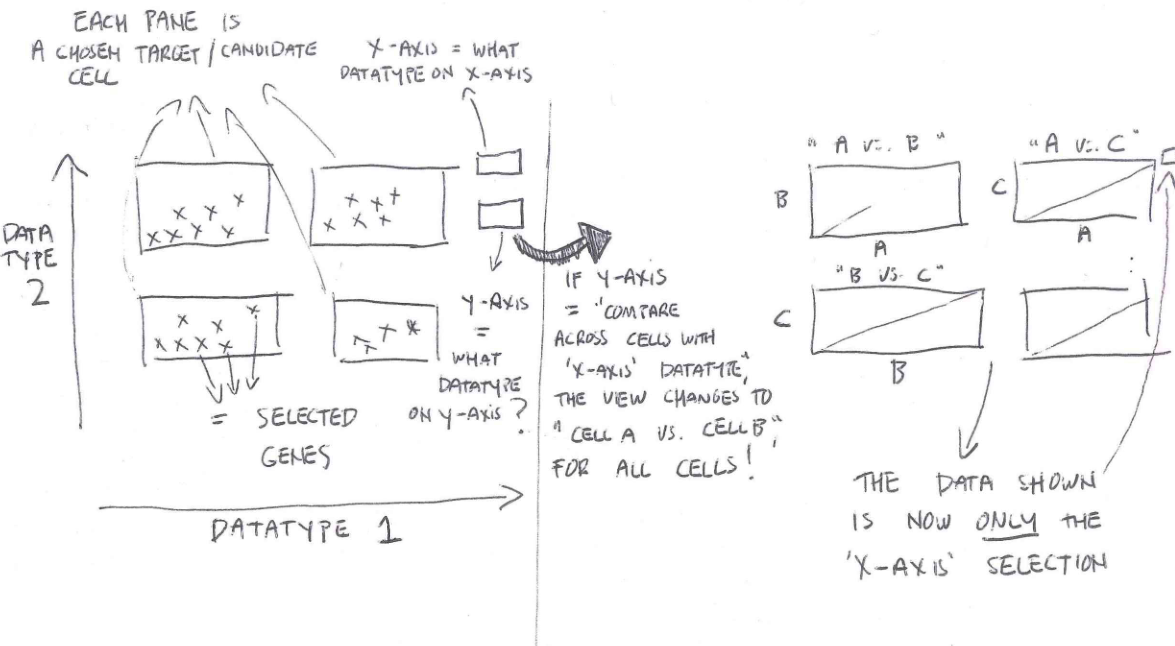 EACH PANE IS
A CHOSEN TARGET / CANDIDATE
CELL
X-AXIS = WHAT
DATATYPE ON X-AXIS
DATA
TYPE
2
Y-AXIS
=
WHAT
DATATYPE
ON Y-AXIS?
= SELECTED
GENES
DATATYPE 1
IF Y-AXIS
= "COMPARE
ACROSS CELLS WITH
'X-AXIS' DATATYPE",
THE VIEW CHANGES TO
"CELL A VS. CELL B",
FOR ALL CELLS!
"A VS. B"
B
A
"A VS. C"
C
A
"B VS. C"
C
B
THE DATA SHOWN
IS NOW ONLY THE
'X-AXIS' SELECTION